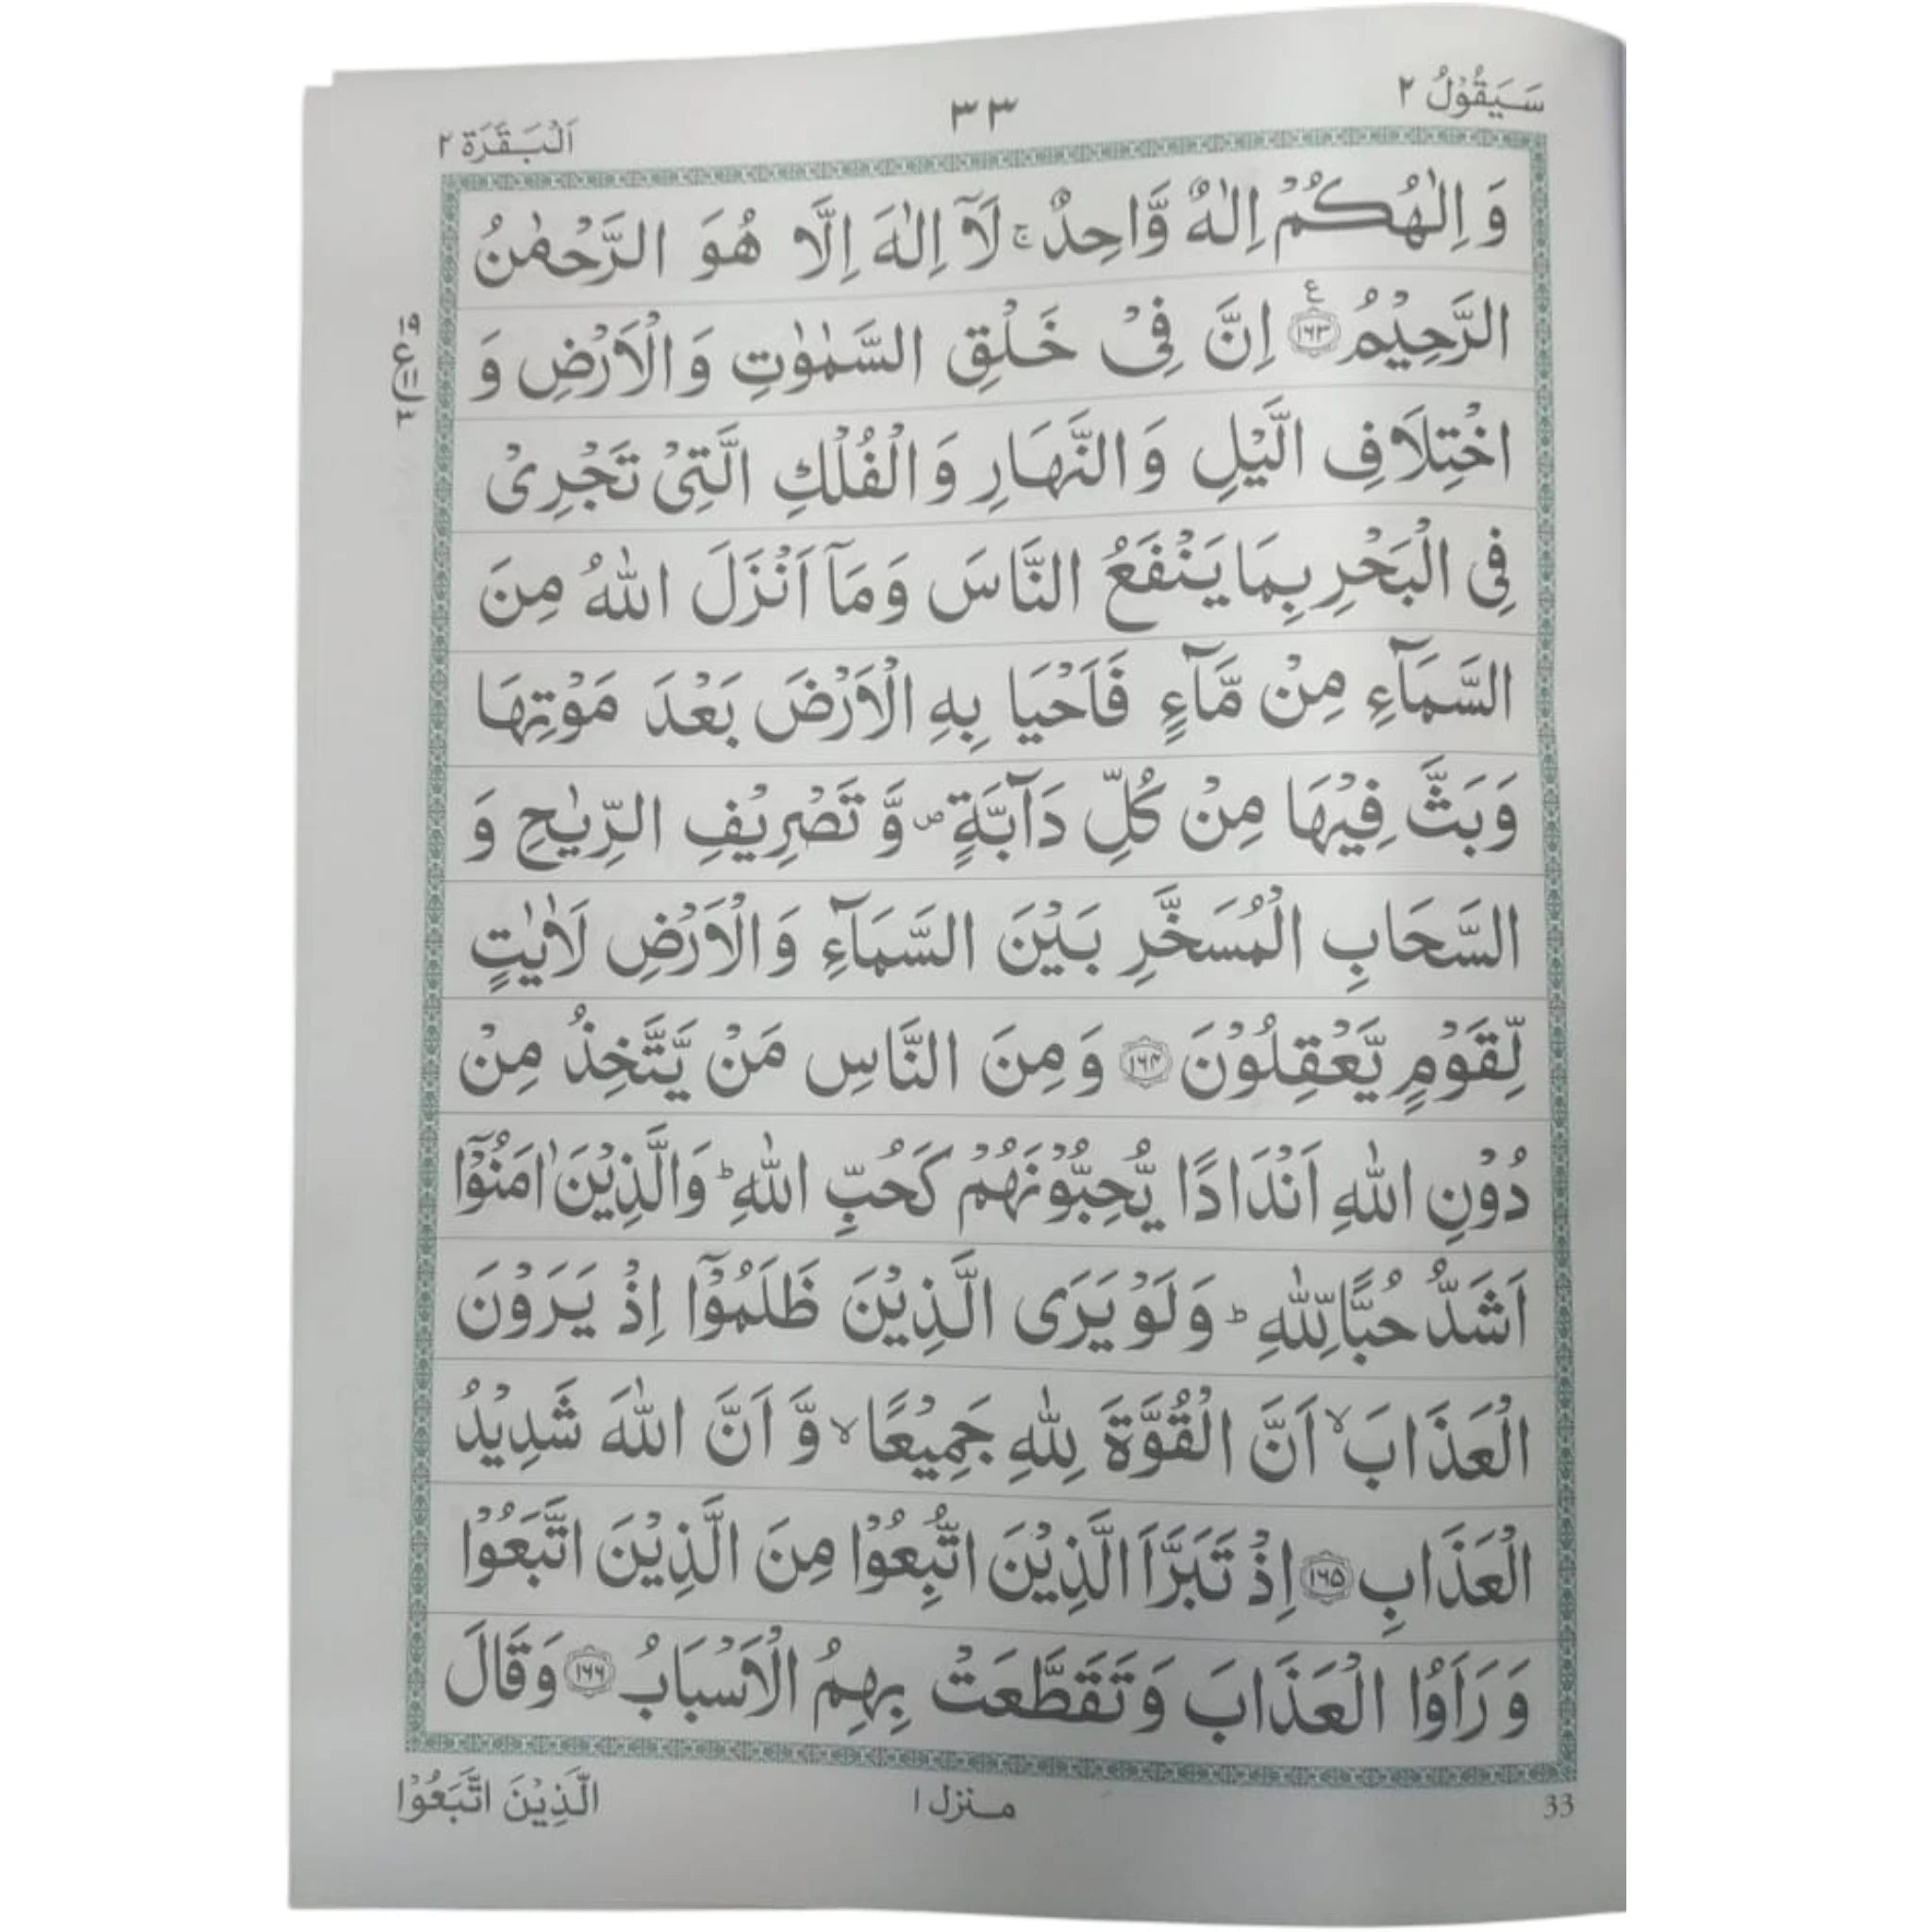 سَيَقُوْلُ ٢
٣٣
اَلْبَقَرَة ٢
وَ اِلٰهُكُمْ اِلٰهٌ وَّاحِدٌ ۚ لَآ اِلٰهَ اِلَّا هُوَ الرَّحْمٰنُ
الرَّحِيْمُ ﴿١٦٣﴾ ع اِنَّ فِيْ خَلْقِ السَّمٰوٰتِ وَالْاَرْضِ وَ
١٩
ع ١١
٣
اخْتِلَافِ الَّيْلِ وَالنَّهَارِ وَالْفُلْكِ الَّتِيْ تَجْرِيْ
فِي الْبَحْرِ بِمَا يَنْفَعُ النَّاسَ وَمَآ اَنْزَلَ اللّٰهُ مِنَ
السَّمَآءِ مِنْ مَّآءٍ فَاَحْيَا بِهِ الْاَرْضَ بَعْدَ مَوْتِهَا
وَبَثَّ فِيْهَا مِنْ كُلِّ دَآبَّةٍ ص وَّ تَصْرِيْفِ الرِّيٰحِ وَ
السَّحَابِ الْمُسَخَّرِ بَيْنَ السَّمَآءِ وَالْاَرْضِ لَاٰيٰتٍ
لِّقَوْمٍ يَّعْقِلُوْنَ ﴿١٦٤﴾ وَمِنَ النَّاسِ مَنْ يَّتَّخِذُ مِنْ
دُوْنِ اللّٰهِ اَنْدَادًا يُّحِبُّوْنَهُمْ كَحُبِّ اللّٰهِ ؕ وَالَّذِيْنَ اٰمَنُوْٓا
اَشَدُّ حُبًّا لِّلّٰهِ ؕ وَلَوْ يَرَى الَّذِيْنَ ظَلَمُوْٓا اِذْ يَرَوْنَ
الْعَذَابَ ۙ اَنَّ الْقُوَّةَ لِلّٰهِ جَمِيْعًا ۙ وَّ اَنَّ اللّٰهَ شَدِيْدُ
الْعَذَابِ ﴿١٦٥﴾ اِذْ تَبَرَّاَ الَّذِيْنَ اتُّبِعُوْا مِنَ الَّذِيْنَ اتَّبَعُوْا
وَ رَاَوُا الْعَذَابَ وَتَقَطَّعَتْ بِهِمُ الْاَسْبَابُ ﴿١٦٦﴾ وَقَالَ
33
منزل ١
الَّذِيْنَ اتَّبَعُوْا